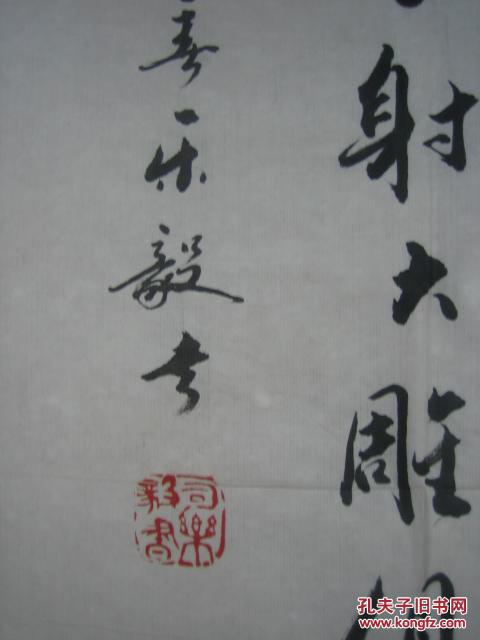 射大雕
乐毅书
司樂毅書
孔夫子旧书网
www.kongfz.com